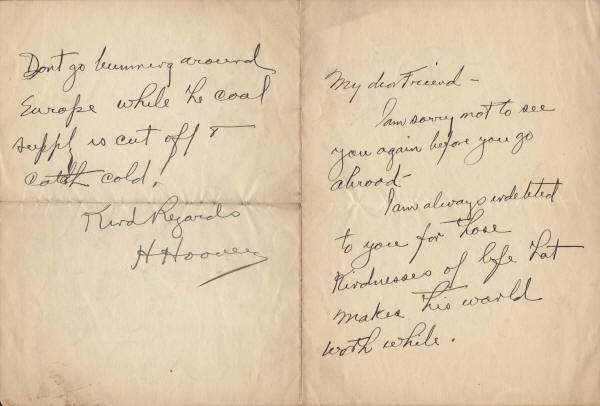 My dear Friend -
I am sorry not to see
you again before you go
abroad -
I am always indebted
to you for those
Kindnesses of life that
makes this world
worth while.
Dont go bumming around
Europe while the coal
supply is cut off &
catch cold.
Kind Regards
H Hoover